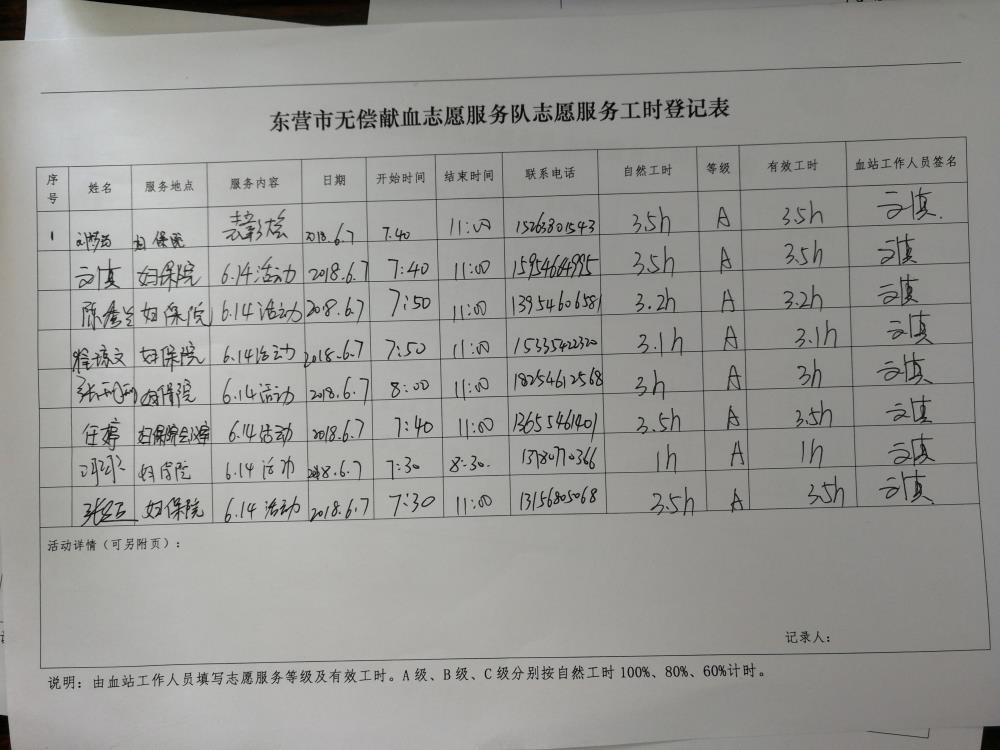 东营市无偿献血志愿服务队志愿服务工时登记表
序号 姓名 服务地点 服务内容 日期 开始时间 结束时间 联系电话 自然工时 等级 有效工时 血站工作人员签名
1 妇保院 表彰大会 2018.6.7 7:40 11:00 15263801543 3.5h A 3.5h 文慎
文慎 妇保院 6.14活动 2018.6.7 7:40 11:00 3.5h A 3.5h 文慎
妇保院 6.14活动 2018.6.7 7:50 11:00 13954606581 3.2h A 3.2h 文慎
妇保院 6.14活动 2018.6.7 7:50 11:00 15335422320 3.1h A 3.1h 文慎
妇保院 6.14活动 2018.6.7 8:00 11:00 18254612568 3h A 3h 文慎
任婷 6.14活动 2018.6.7 7:40 11:00 13655461401 3.5h A 3.5h 文慎
妇保院 6.14活动 2018.6.7 7:30 8:30. 13780770366 1h A 1h 文慎
妇保院 6.14活动 2018.6.7 7:30 11:00 13156805068 3.5h A 3.5h 文慎
活动详情（可另附页）：
记录人：
说明：由血站工作人员填写志愿服务等级及有效工时。A级、B级、C级分别按自然工时100%、80%、60%计时。